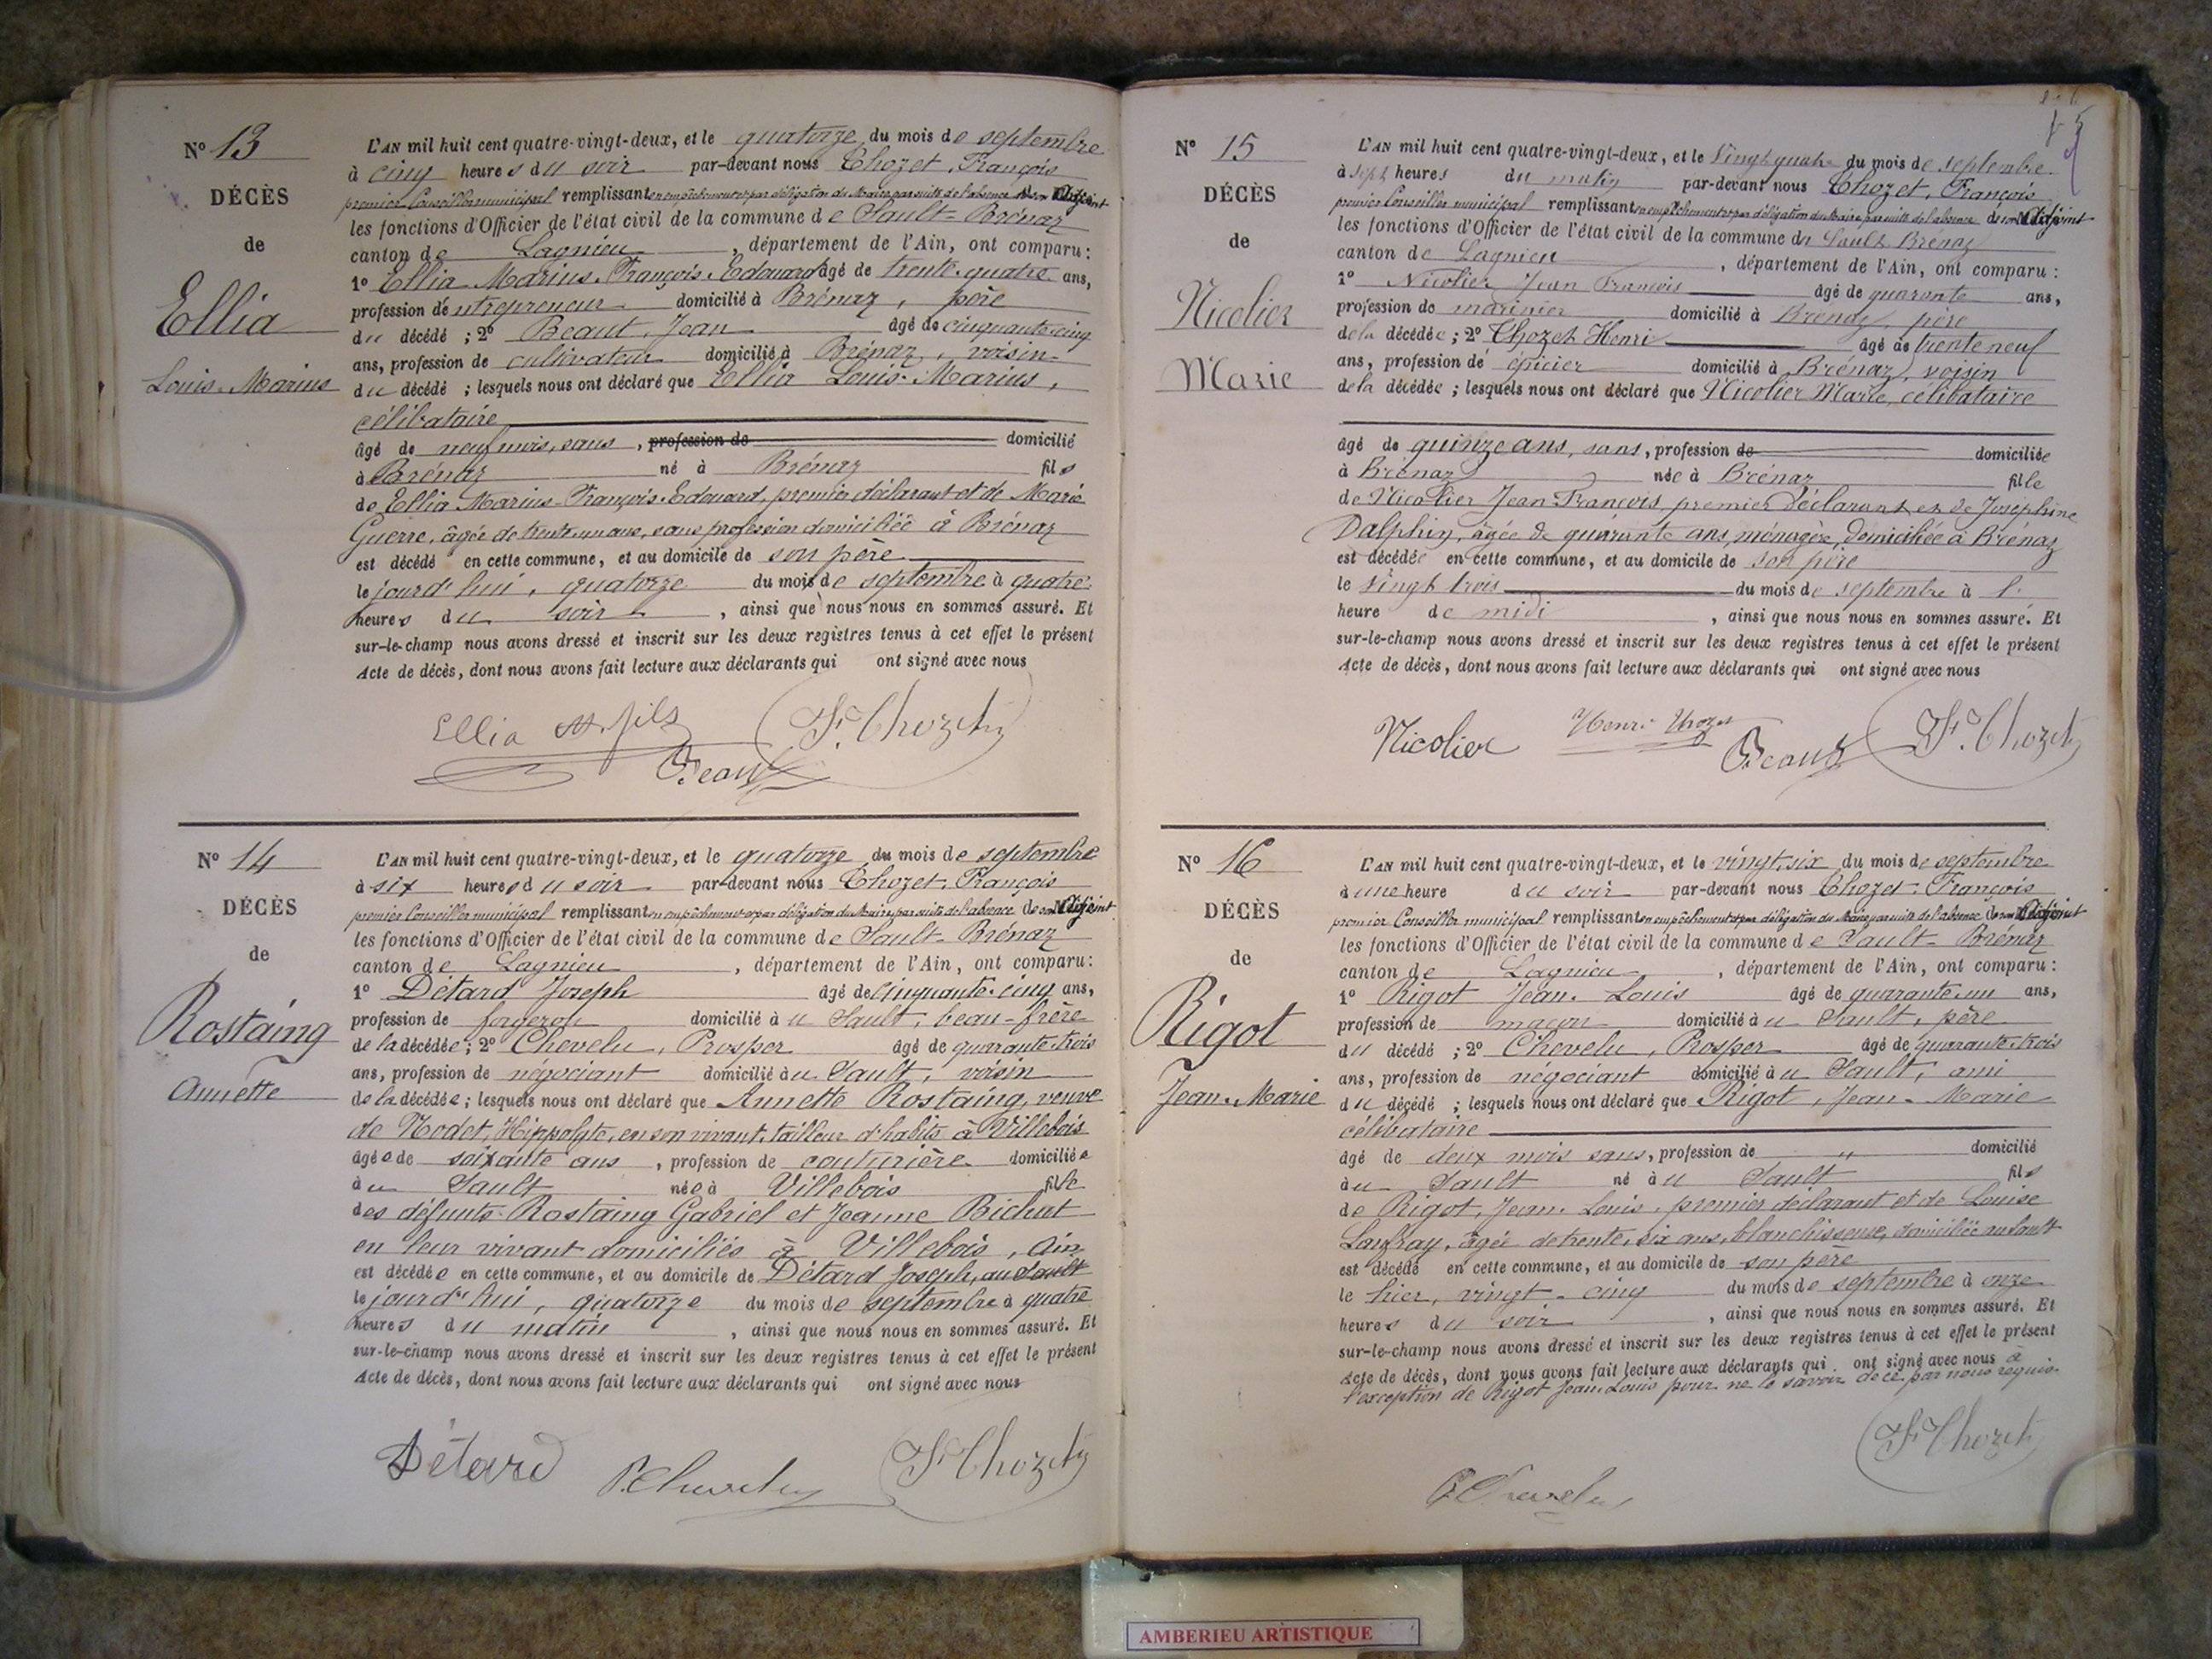 N° 13
DÉCÈS
de
Ellia
Louis-Marius
L'AN mil huit cent quatre-vingt-deux, et le quatorze du mois de septembre
à cinq heures du soir par-devant nous Chozet, François
premier Conseiller municipal remplissant en empêchement et par délégation du Maire par suite de l'absence de son Adjoint
les fonctions d'Officier de l'état civil de la commune de Sault-Brénaz
canton de Lagnieu, département de l'Ain, ont comparu:
1° Ellia Marius-François-Edouard âgé de trente-quatre ans,
profession d'entrepreneur domicilié à Brénaz, père
du décédé; 2° Beaut, Jean âgé de cinquante-cinq
ans, profession de cultivateur domicilié à Brénaz, voisin
du décédé; lesquels nous ont déclaré que Ellia Louis-Marius,
célibataire
âgé de neuf mois, sans, profession de domicilié
à Brénaz né à Brénaz fils
de Ellia Marius-François-Edouard, premier déclarant et de Marie
Guerre, âgée de trente-un ans, sans profession domiciliée à Brénaz
est décédé en cette commune, et au domicile de son père
le jourd'hui, quatorze du mois de septembre à quatre
heures du soir, ainsi que nous nous en sommes assuré. Et
sur-le-champ nous avons dressé et inscrit sur les deux registres tenus à cet effet le présent
Acte de décès, dont nous avons fait lecture aux déclarants qui ont signé avec nous
Ellia M. fils F. Chozet
Beaut
N° 14
DÉCÈS
de
Rostaing
Annette
L'AN mil huit cent quatre-vingt-deux, et le quatorze du mois de septembre
à six heures du soir par-devant nous Chozet, François
premier Conseiller municipal remplissant en empêchement et par délégation du Maire par suite de l'absence de son Adjoint
les fonctions d'Officier de l'état civil de la commune de Sault-Brénaz
canton de Lagnieu, département de l'Ain, ont comparu:
1° Détard Joseph âgé de cinquante-cinq ans,
profession de forgeron domicilié à u Sault, beau-frère
de la décédée; 2° Chevelu, Prosper âgé de quarante-trois
ans, profession de négociant domicilié à u Sault, voisin
de la décédée; lesquels nous ont déclaré que Annette Rostaing, veuve
de Nodet, Hippolyte, en son vivant, tailleur d'habits à Villebois
âgée de soixante ans, profession de couturière domiciliée
à u Sault née à Villebois fille
des défunts Rostaing Gabriel et Jeanne Bichat
en leur vivant domiciliés à Villebois, Ain
est décédée en cette commune, et au domicile de Détard Joseph, au Sault
le jourd'hui, quatorze du mois de septembre à quatre
heures du matin, ainsi que nous nous en sommes assuré. Et
sur-le-champ nous avons dressé et inscrit sur les deux registres tenus à cet effet le présent
Acte de décès, dont nous avons fait lecture aux déclarants qui ont signé avec nous
Détard P. Chevelu F. Chozet
N° 15
DÉCÈS
de
Nicolier
Marie
L'AN mil huit cent quatre-vingt-deux, et le vingt quatre du mois de septembre
à sept heures du matin par-devant nous Chozet, François
premier Conseiller municipal remplissant en empêchement et par délégation du Maire par suite de l'absence de son Adjoint
les fonctions d'Officier de l'état civil de la commune de Sault-Brénaz
canton de Lagnieu, département de l'Ain, ont comparu:
1° Nicolier Jean François âgé de quarante ans,
profession de marinier domicilié à Brénaz, père
de la décédée; 2° Chozet Henri âgé de trente neuf
ans, profession de épicier domicilié à Brénaz, voisin
de la décédée; lesquels nous ont déclaré que Nicolier Marie, célibataire
âgé de quinze ans, sans, profession de domiciliée
à Brénaz née à Brénaz fille
de Nicolier Jean-François, premier déclarant, et de Joséphine
Dalphin, âgée de quarante ans, ménagère, domiciliée à Brénaz
est décédée en cette commune, et au domicile de son père
le vingt trois du mois de septembre à l'
heure de midi, ainsi que nous nous en sommes assuré. Et
sur-le-champ nous avons dressé et inscrit sur les deux registres tenus à cet effet le présent
Acte de décès, dont nous avons fait lecture aux déclarants qui ont signé avec nous
Nicolier Henri Chozet Beaut F. Chozet
N° 16
DÉCÈS
de
Rigot
Jean-Marie
L'AN mil huit cent quatre-vingt-deux, et le vingt-six du mois de septembre
à une heure du soir par-devant nous Chozet, François
premier Conseiller municipal remplissant en empêchement et par délégation du Maire par suite de l'absence de son Adjoint
les fonctions d'Officier de l'état civil de la commune de Sault-Brénaz
canton de Lagnieu, département de l'Ain, ont comparu:
1° Rigot Jean-Louis âgé de quarante-un ans,
profession de maçon domicilié à u Sault, père
du décédé; 2° Chevelu, Prosper âgé de quarante-trois
ans, profession de négociant domicilié à u Sault, ami
du décédé; lesquels nous ont déclaré que Rigot, Jean-Marie
célibataire
âgé de deux mois sans, profession de " domicilié
à u Sault né à u Sault fils
de Rigot, Jean-Louis, premier déclarant et de Louise
Laufray, âgée de trente-six ans, blanchisseuse, domiciliée au Sault
est décédé en cette commune, et au domicile de son père
le hier, vingt-cinq du mois de septembre à onze
heures du soir, ainsi que nous nous en sommes assuré. Et
sur-le-champ nous avons dressé et inscrit sur les deux registres tenus à cet effet le présent
Acte de décès, dont nous avons fait lecture aux déclarants qui ont signé avec nous à
l'exception de Rigot Jean-Louis pour ne le savoir de ce par nous requis.
F. Chozet
P. Chevelu
AMBERIEU ARTISTIQUE